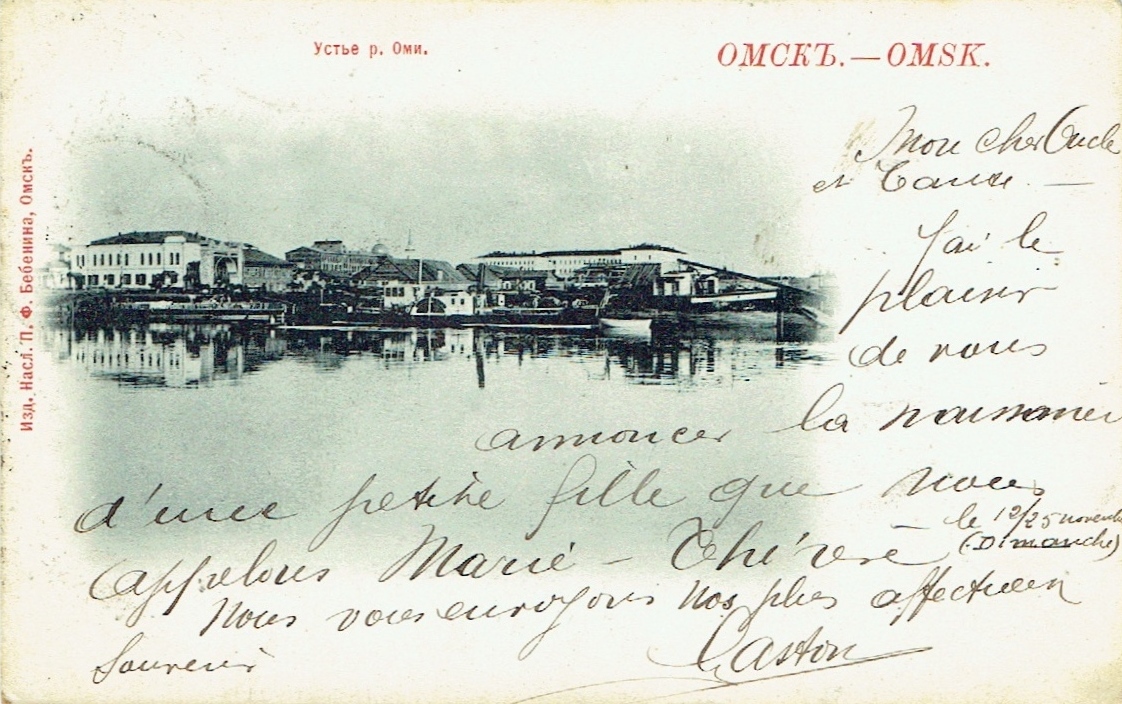 Устье р. Оми.
ОМСКЪ.—OMSK.
Изд. Насл. П. Ф. Бебенина, Омскъ.
Mon cher Oncle
et Tante. —
J'ai le
plaisir
de vous
annoncer la naissance
d'une petite fille que nous
— le 12/25 novembre
(Dimanche)
appelons Marie-Thérèse
Nous vous envoyons nos plus affectueux
Souvenir
Gaston